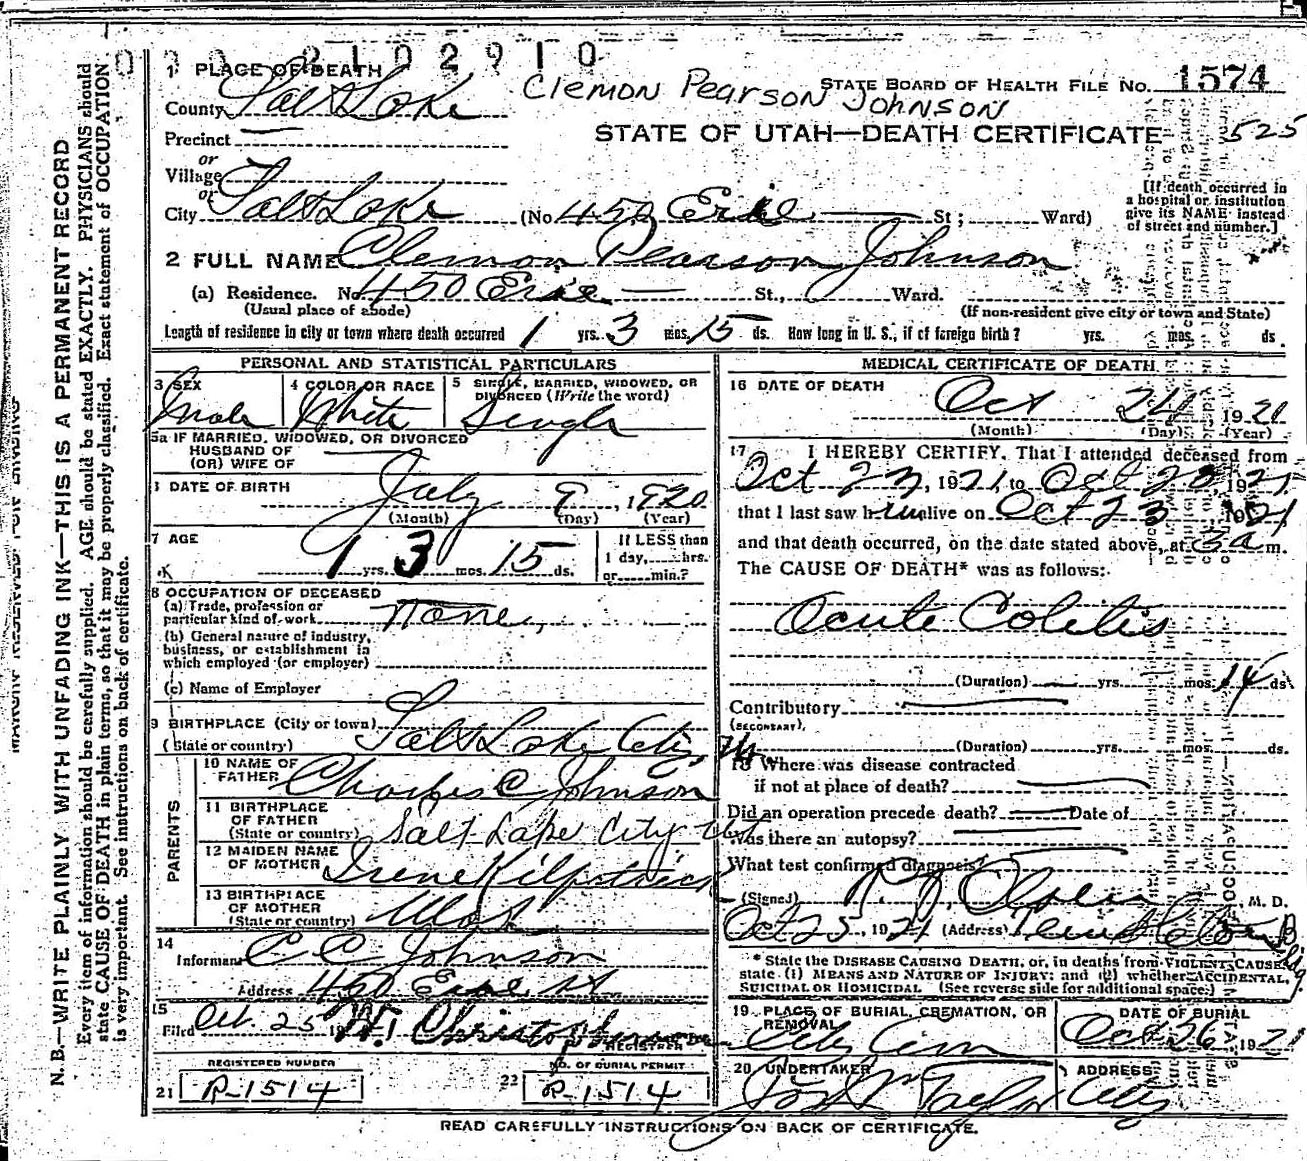 0 2102910
1 PLACE OF DEATH
Clemon Pearson Johnson
STATE BOARD OF HEALTH FILE No. 1574
County Salt Lake
STATE OF UTAH—DEATH CERTIFICATE 525
Precinct
or
Village
or
City Salt Lake (No. 450 Erie St; Ward)
[If death occurred in
a hospital or institution
give its NAME instead
of street and number.]
2 FULL NAME Clemon Pearson Johnson
(a) Residence. No. 450 Erie St., Ward.
(Usual place of abode) (If non-resident give city or town and State)
Length of residence in city or town where death occurred 1 yrs. 3 mos. 15 ds. How long in U. S., if of foreign birth? yrs. mos. ds.
PERSONAL AND STATISTICAL PARTICULARS
3 SEX Male
4 COLOR OR RACE White
5 SINGLE, MARRIED, WIDOWED, OR
DIVORCED (Write the word)
Single
5a IF MARRIED, WIDOWED, OR DIVORCED
HUSBAND OF
(OR) WIFE OF
DATE OF BIRTH July 9, 1920
(Month) (Day) (Year)
7 AGE 1 yrs. 3 mos. 15 ds.
If LESS than
1 day, hrs.
or min.?
8 OCCUPATION OF DECEASED
(a) Trade, profession or
particular kind of work None
(b) General nature of industry,
business, or establishment in
which employed (or employer)
(c) Name of Employer
9 BIRTHPLACE (City or town) Salt Lake City
(State or country)
PARENTS
10 NAME OF
FATHER Charles C Johnson
11 BIRTHPLACE
OF FATHER
(State or country) Salt Lake City Ut
12 MAIDEN NAME
OF MOTHER Irene Kilpatrick
13 BIRTHPLACE
OF MOTHER
(State or country) Utah
14
Informant C C Johnson
Address 450 Erie St
15
Filed Oct 25
REGISTRAR
REGISTERED NUMBER
21 R-1514
NO. OF BURIAL PERMIT
22 R-1514
MEDICAL CERTIFICATE OF DEATH
16 DATE OF DEATH
Oct 24 1921
(Month) (Day) (Year)
17 I HEREBY CERTIFY, That I attended deceased from
Oct 23, 1921, to Oct 23, 1921
that I last saw him alive on Oct 23 1921
and that death occurred, on the date stated above, at 3a m.
The CAUSE OF DEATH* was as follows:
Acute Colitis
(Duration) yrs. mos. 14 ds
Contributory
(SECONDARY)
(Duration) yrs. mos. ds.
18 Where was disease contracted
if not at place of death?
Did an operation precede death? Date of
Was there an autopsy?
What test confirmed diagnosis?
(Signed) Olsen, M. D.
Oct 25, 1921 (Address) Templeton Bldg.
* State the DISEASE CAUSING DEATH, or, in deaths from VIOLENT CAUSE,
state (1) MEANS AND NATURE OF INJURY; and (2) whether ACCIDENTAL,
SUICIDAL OR HOMICIDAL. (See reverse side for additional space.)
19 PLACE OF BURIAL, CREMATION, OR
REMOVAL
City Cem
DATE OF BURIAL
Oct 26 1921
20 UNDERTAKER
Jos Wm Taylor
ADDRESS
City
READ CAREFULLY INSTRUCTIONS ON BACK OF CERTIFICATE.
N. B.—WRITE PLAINLY WITH UNFADING INK—THIS IS A PERMANENT RECORD
Every item of information should be carefully supplied. AGE should be stated EXACTLY. PHYSICIANS should
state CAUSE OF DEATH in plain terms, so that it may be properly classified. Exact statement of OCCUPATION
is very important. See instructions on back of certificate.